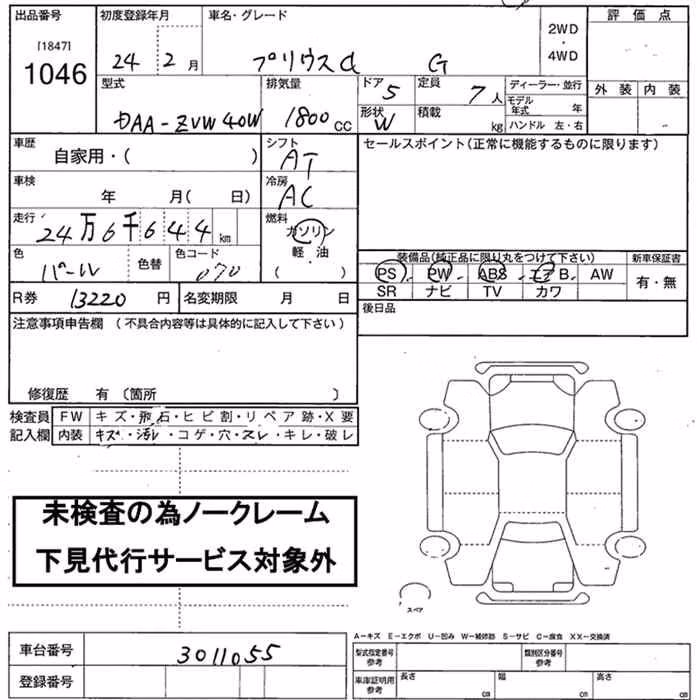 出品番号 初度登録年月 車名・グレード 2WD・4WD 評価点
[1847]
1046
24 2月 プリウスα G
外装 内装
型式 排気量 ドア 5 定員 7人 ディーラー・並行
DAA-ZVW40W 1800cc 形状 W 積載 kg モデル年式 年
ハンドル 左・右
車歴 自家用・( ) シフト AT セールスポイント(正常に機能するものに限ります)
車検 年 月( 日) 冷房 AC
走行 24万6千644km 燃料 ガソリン・軽油 ( )
色 パール 色替 色コード 070
装備品(純正品に限り丸をつけて下さい) 新車保証書
PS PW ABS エアB AW 有・無
SR ナビ TV カワ
R券 13220円 名変期限 月 日 後日品
注意事項申告欄 (不具合内容等は具体的に記入して下さい)
修復歴 有(箇所 )
検査員記入欄 FW キズ・飛石・ヒビ割・リペア跡・X要
内装 キズ・汚レ・コゲ・穴・スレ・キレ・破レ
未検査の為ノークレーム
下見代行サービス対象外
スペア
A-キズ E-エクボ U-凹み W-補修跡 S-サビ C-腐食 XX-交換済
車台番号 3011055 型式指定番号参考 類別区分番号参考
登録番号 車庫証明用参考 長さ cm 幅 cm 高さ cm